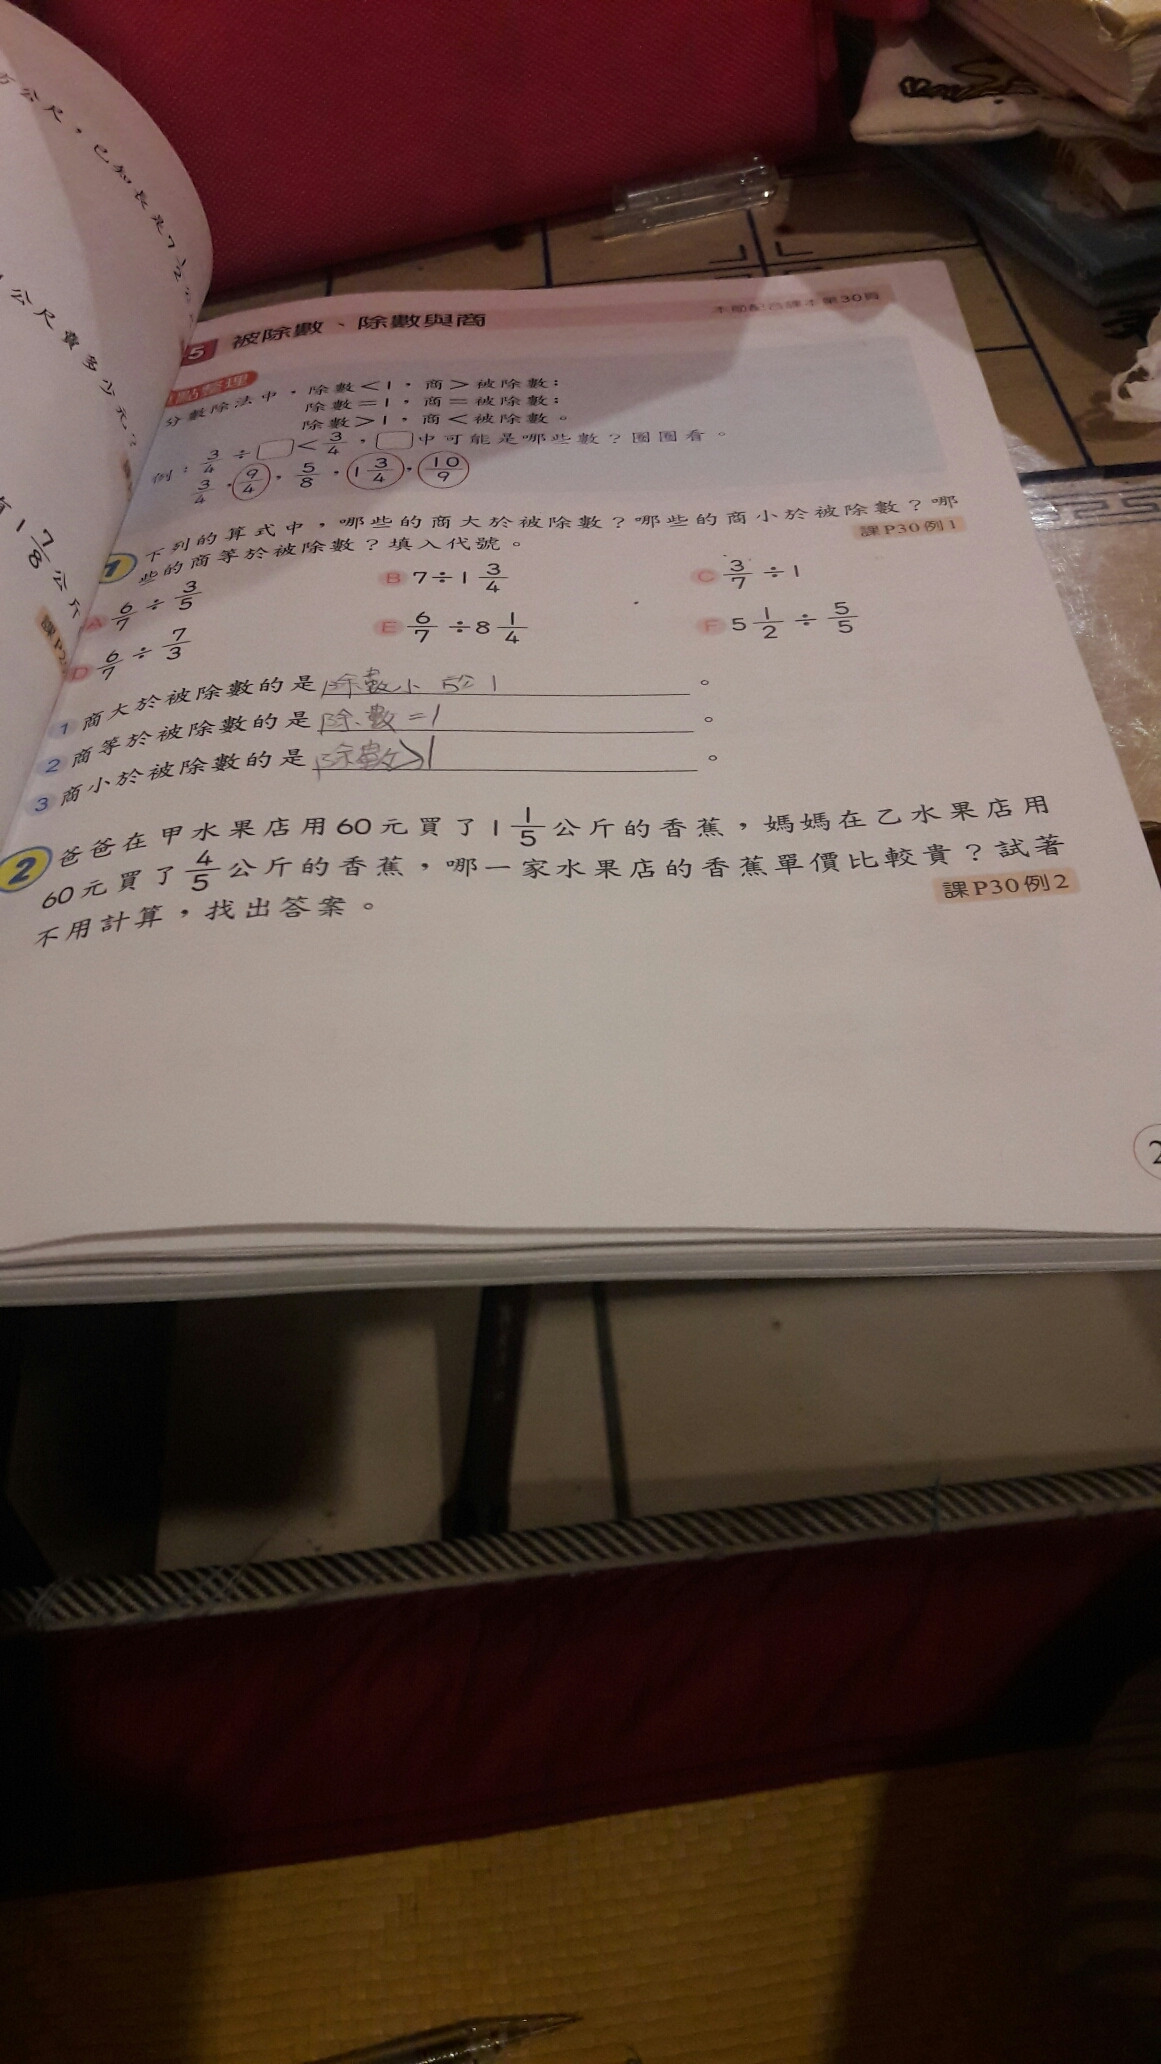 公尺，已知長是7 1/2
公尺賣多少元？
1 7/8 公斤
5 被除數、除數與商
本節配合課本第30頁
點整理
分數除法中，除數＜1，商＞被除數；
除數＝1，商＝被除數；
除數＞1，商＜被除數。
例：3/4÷□＜3/4，□中可能是哪些數？圈圈看。
3/4，9/4，5/8，1 3/4，10/9
1 下列的算式中，哪些的商大於被除數？哪些的商小於被除數？哪
些的商等於被除數？填入代號。
課P30例1
A 6/7÷3/5 B 7÷1 3/4 C 3/7÷1
D 6/7÷7/3 E 6/7÷8 1/4 F 5 1/2÷5/5
1 商大於被除數的是除數小於1。
2 商等於被除數的是除數=1。
3 商小於被除數的是除數>1。
2 爸爸在甲水果店用60元買了1 1/5公斤的香蕉，媽媽在乙水果店用
60元買了4/5公斤的香蕉，哪一家水果店的香蕉單價比較貴？試著
不用計算，找出答案。
課P30例2